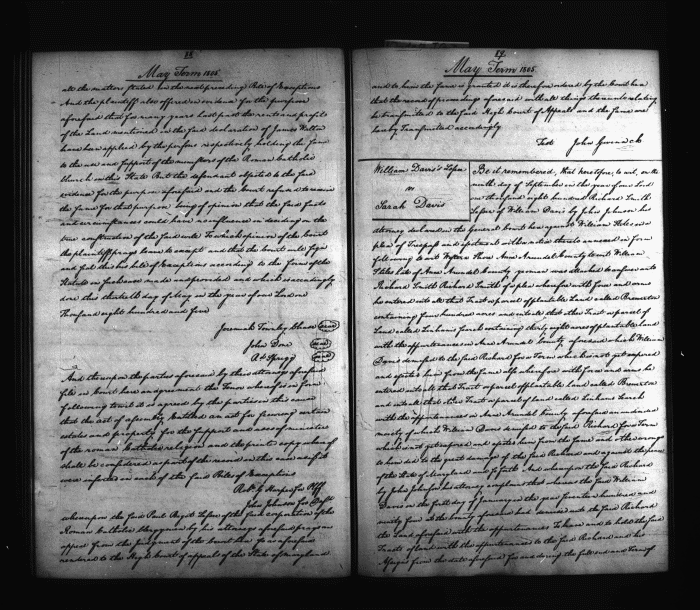 88
May Term 1805
all the matters stated in the next preceding Bill of Exceptions
And the plaintiff also offered in evidence for the purpose
aforesaid that for many years last past the rents and profits
of the Land mentioned in the said declaration of James Walton
have been applied by the persons respectively holding the same
to the use and support of the ministers of the Roman Catholic
church in this State But the defendant objected to the said
evidence for the purpose aforesaid and the Court refused to receive
the same for that purpose being of opinion that the said facts
and circumstances could have no influence in deciding on the
true construction of the said will To which opinion of the Court
the plaintiff prays leave to except and that the Court will sign
and seal this his bill of Exceptions according to the form of the
Statute in such case made and provided and which is accordingly
done this thirtieth day of May in the year of our Lord one
Thousand eight hundred and five
Jeremiah Townley Chase
John Done
And thereupon the parties aforesaid by their attornies aforesaid
file in Court here an agreement the Tenor whereof is in form
following to wit it is agreed by the parties in this cause
that the act of assembly Entitled an act for securing certain
estates and property for the support and uses of ministers
of the roman Catholic religion and the printed copy whereof
shall be considered as part of the record in this case as if it
were inserted in each of the said Bills of Exceptions
Robt G Harper for Plff
John Johnson for Deft
whereupon the said Paul Bagot Lessee of the said corporation of the
Roman Catholic Clergymen by his attorney aforesaid prays an
appeal from the Judgment of the Court here so as aforesaid
rendered to the High Court of appeals of the State of Maryland
89
May Term 1805
and to him the same is granted it is therefore ordered by the Court here
that the record of proceedings aforesaid with all things thereunto relating
be transmitted to the said High Court of Appeals and the same are
hereby Transmitted accordingly
Test John Gwinn Ck
William Davis's Lessee
vs
Sarah Davis
Be it remembered, that heretofore, to wit, on the
ninth day of September in the year of our Lord
one thousand eight hundred Richard Smith
Lessee of William Davis by John Johnson his
attorney declared in the General Court here against William Stiles in a
plea of Trespass and ejectment with a notice thereto annexed in form
following to wit Western Shore Ann Arundel County to wit William
Stiles late of Ann Arundel County yeoman was attached to answer unto
Richard Smith of a plea wherefore with force and arms
he entered into all that Tract or parcel of plantable Land called Brewerton
containing four hundred acres and into all that other Tract or parcel of
Land called Linhams Search containing thirty eight acres of plantable land
with the appurtenances in Ann Arundel County aforesaid which William
Davis demised to the said Richard for a Term which is not yet expired
and ejected him from the same also wherefore with force and arms he
entered into all that Tract or parcel of plantable land called Brewerton
and into all that other Tract or parcel of land called Linhams Search
with the appurtenances in Ann Arundel County aforesaid an undivided
moiety of which William Davis demised to the said Richard for a Term
which is not yet expired and ejected him from the same and other wrongs
to him did to the great damage of the said Richard and against the peace
of the State of Maryland and so forth And whereupon the said Richard
by John Johnson his attorney complains that whereas the said William
Davis on the first day of January in the year seventeen hundred and
ninety four at the County aforesaid had demised unto the said Richard
the Land aforesaid with the appurtenances To have and to hold the said
Tracts of land with the appurtenances to the said Richard and his
Assigns from the date aforesaid for and during the full end and Term of